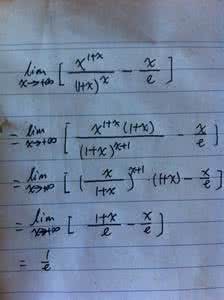 lim x→+∞ [ x^{1+x} / (1+x)^x - x/e ]
= lim x→+∞ [ x^{1+x} (1+x) / (1+x)^{x+1} - x/e ]
= lim x→+∞ [ ( x / 1+x )^{x+1} (1+x) - x/e ]
= lim x→+∞ [ 1+x / e - x/e ]
= 1/e